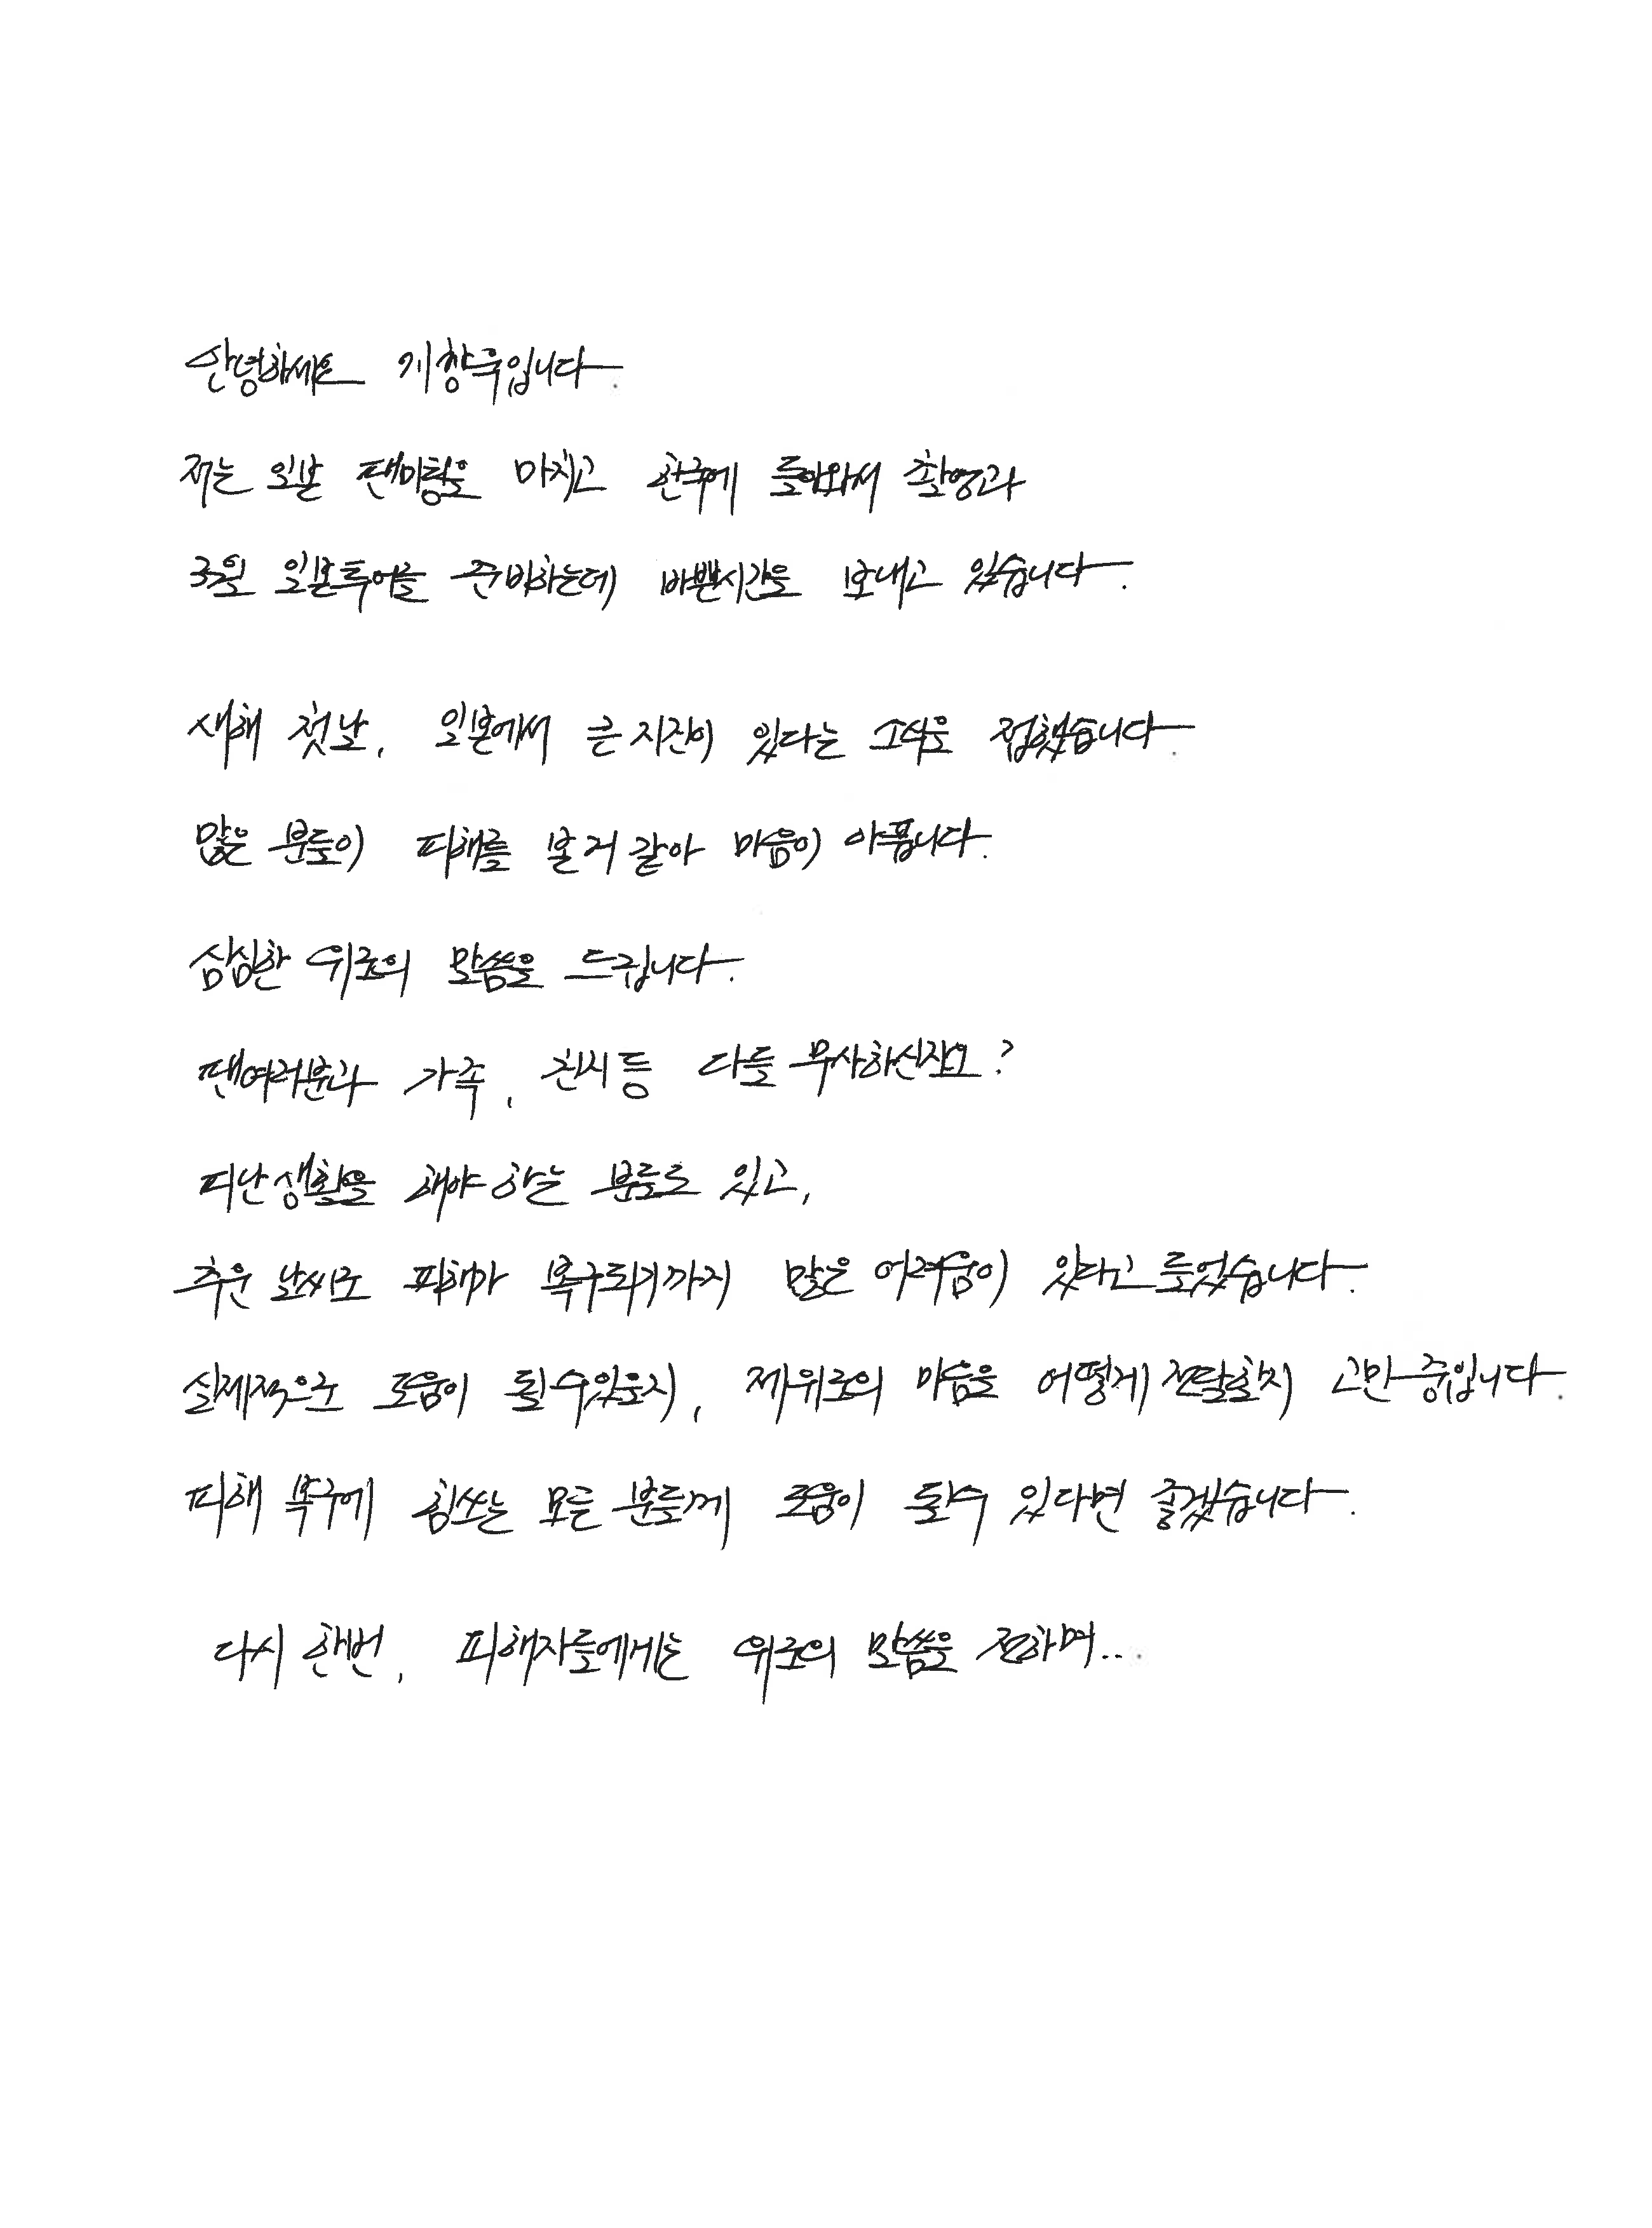 안녕하세요 지창욱입니다.
저는 일본 팬미팅을 마치고 한국에 돌아와서 촬영과
3월 일본투어를 준비하는데 바쁜시간을 보내고 있습니다.
새해 첫날, 일본에서 큰 지진이 있다는 소식을 접했습니다.
많은 분들이 피해를 본거 같아 마음이 아픕니다.
심심한 위로의 말씀을 드립니다.
팬여러분과 가족, 친지등 다들 무사하신지요?
피난생활을 해야 하는 분들도 있고,
추운 날씨로 피해가 복구되기까지 많은 어려움이 있다고 들었습니다.
실제적으로 도움이 될수있을지, 제위로의 마음을 어떻게 전달할지 고민중입니다.
피해 복구에 힘쓰는 모든 분들께 도움이 될수 있다면 좋겠습니다.
다시 한번, 피해자들에게는 위로의 말씀을 전하며...